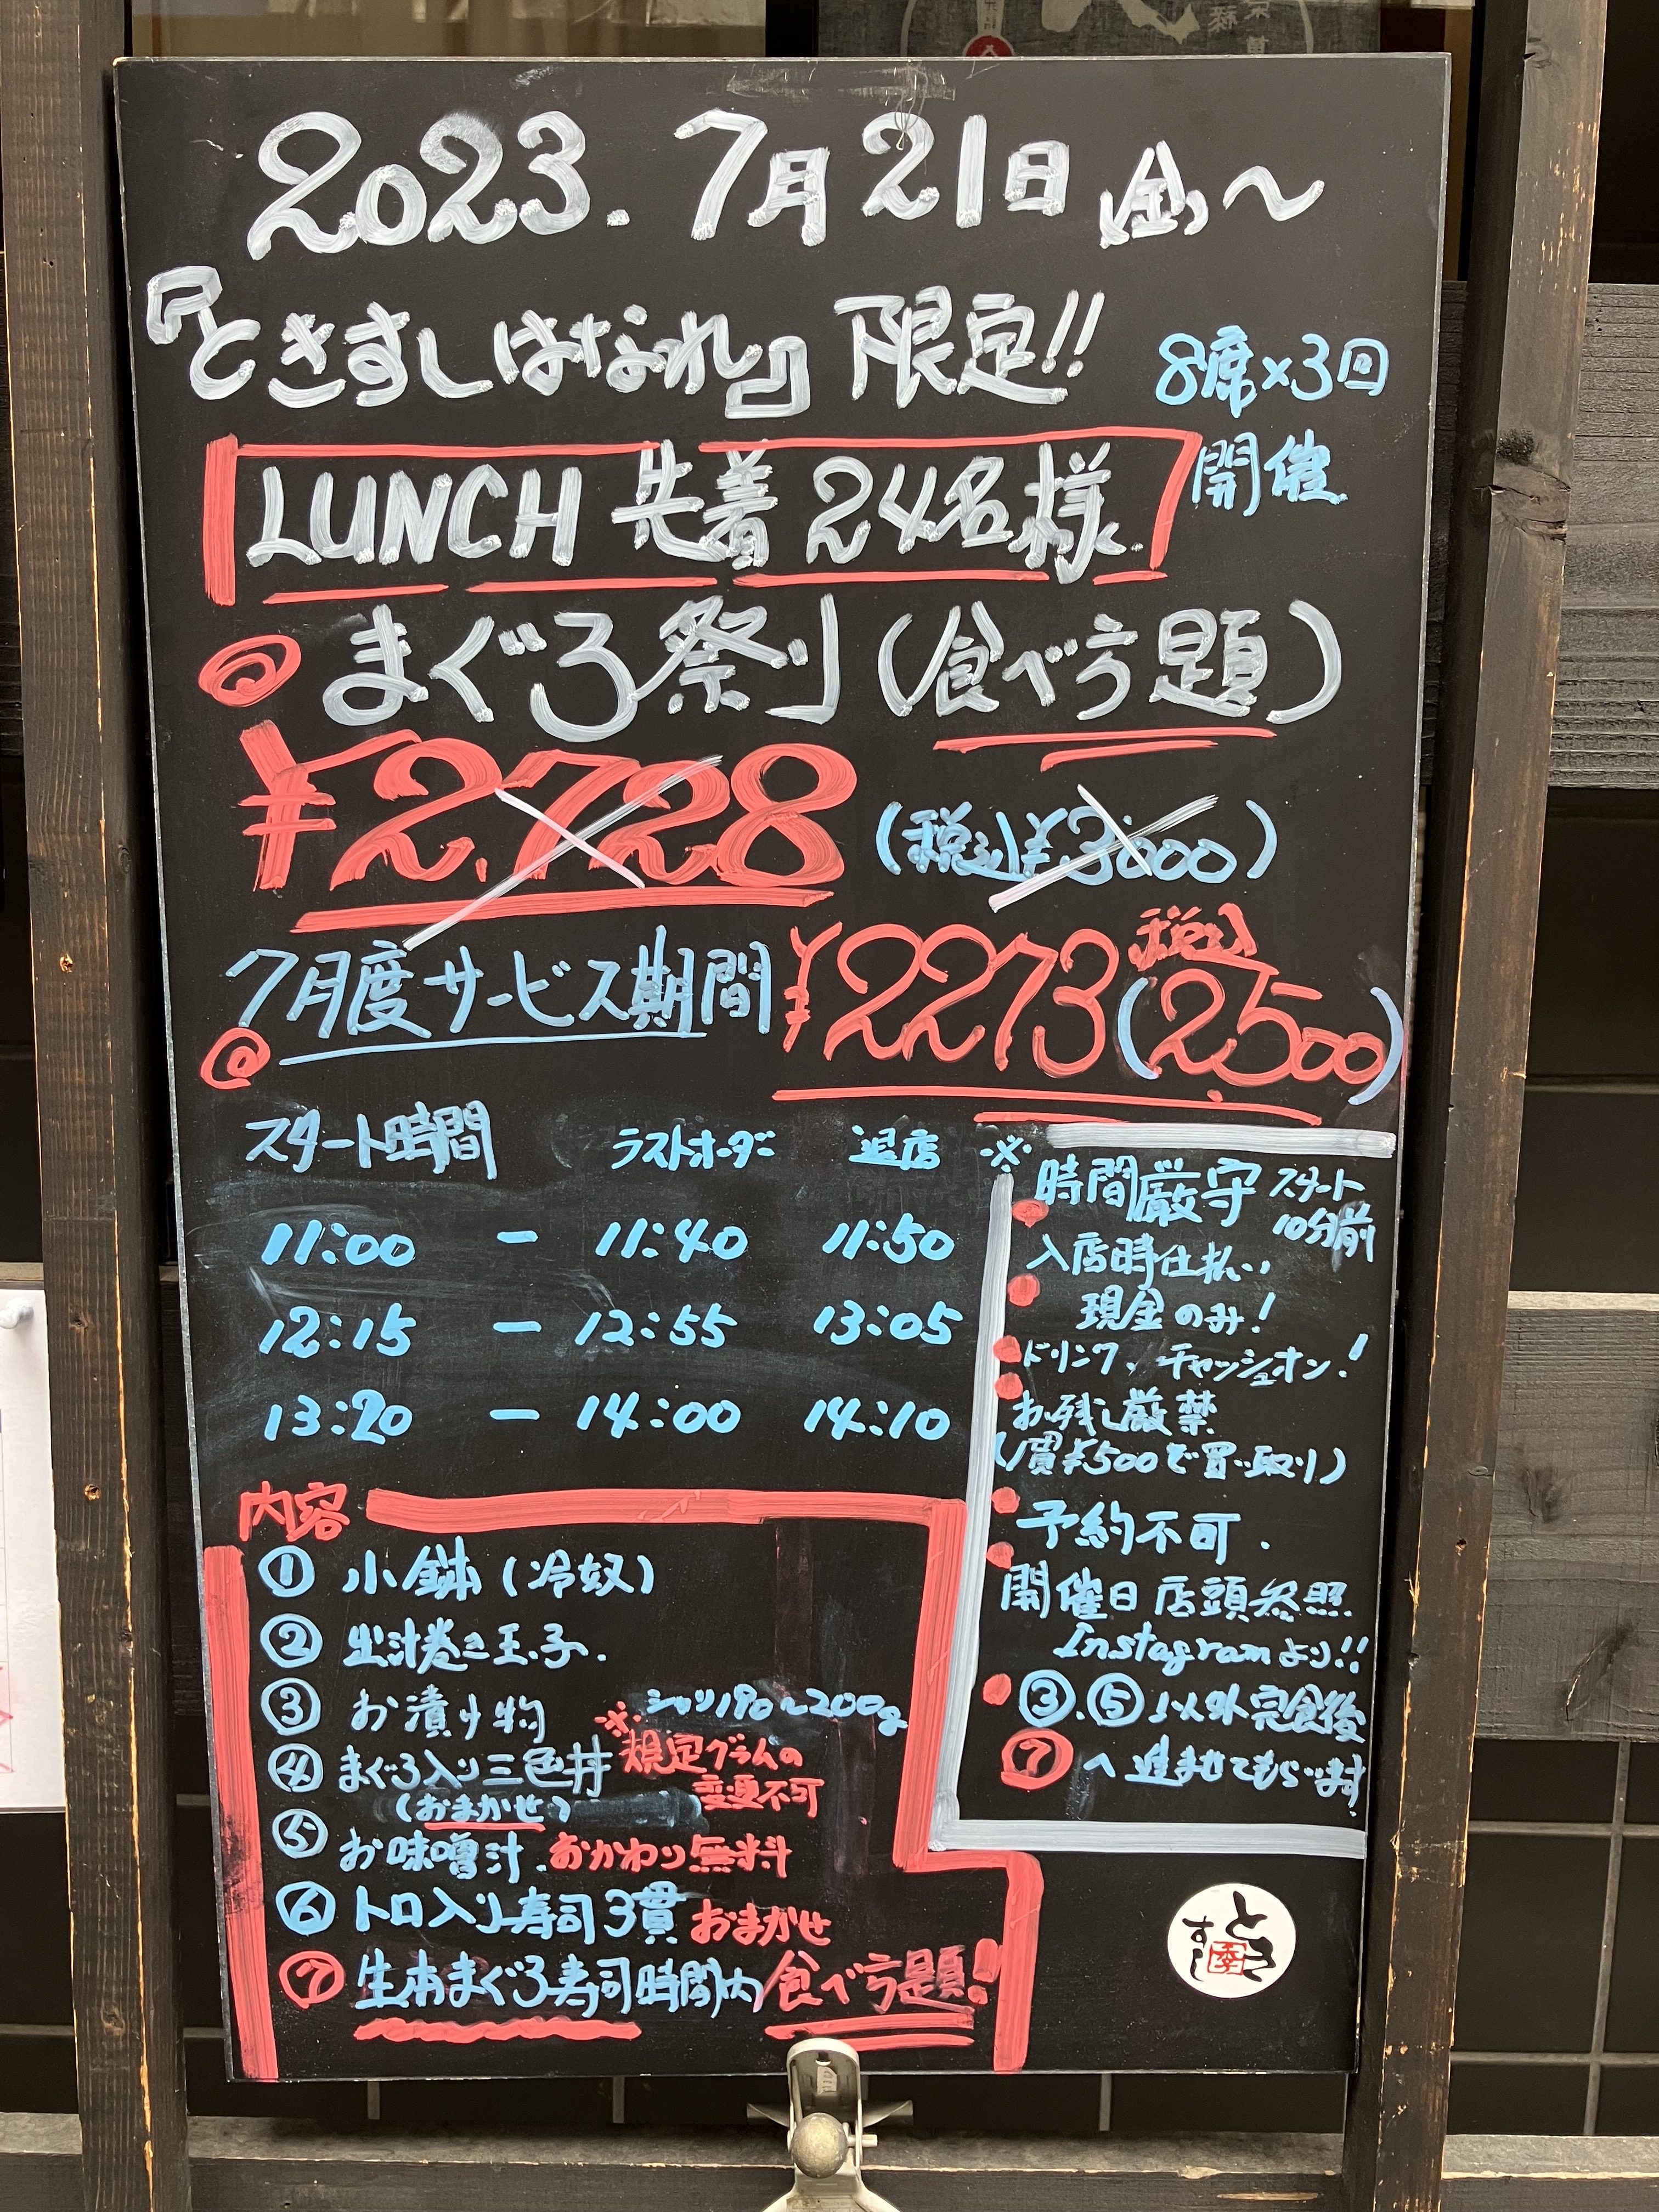 2023.7月21日金〜
『ときすしはなれ』限定!!
8席×3回
開催
LUNCH 先着24名様.
まぐろ祭り(食べ方題)
¥2,728 (税込¥3000)
7月度サービス期間 ¥2273 税込(2500)
スタート時間 ラストオーダー 退店
11:00 - 11:40 11:50
12:15 - 12:55 13:05
13:20 - 14:00 14:10
※時間厳守 スタート10分前
入店時仕払い
現金のみ!
ドリンク、チャッシュオン!
お残し厳禁
(1貫¥500で買い取り)
予約不可.
開催日店頭参照
Instagramより!!
③.⑤以外完食後
⑦へ進ませてもらいます
内容
① 小鉢(冷奴)
② 出汁巻き玉子.
③ お漬け物
※シャリ190〜200g
④ まぐろ入り三色丼 規定グラムの
変更不可
(おまかせ)
⑤ お味噌汁.おかわり無料
⑥ トロ入り寿司3貫 おまかせ
⑦ 生本まぐろ寿司時間内食べ方題!
ときすし
季